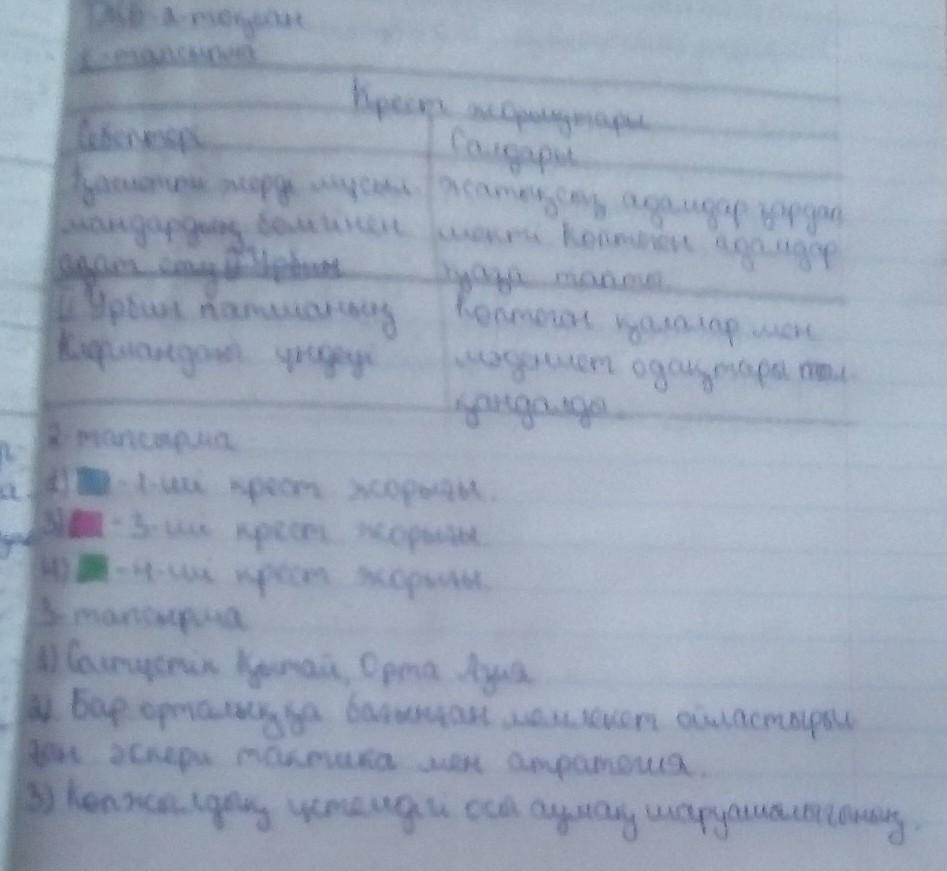 2-тоқсан
-тапсырма
Крест жорықтары
Себептері
Салдары
Қасиетті жерді мұсыл
мандардың билігінен
азат ету II Урбын
жазықсыз адамдар зардап
шекті Көптеген адамдар
қаза тапты
II Урбын патшаның
Клермандағы үндеуі
Көптеген қалалар мен
мәдениет ошақтары тал
қандалды.
2-тапсырма
1) -1-ші крест жорығы.
3) -3-ші крест жорығы
4) -4-ші крест жорығы.
3-тапсырма
1) Солтүстік Қытай, Орта Азия
2) Бар орталыққа бағынған мемлекет ойластырыл
ған әскери тактика мен стратегия.
3) Көпжылдық үстемдігі осы аумақ шаруашылығының.